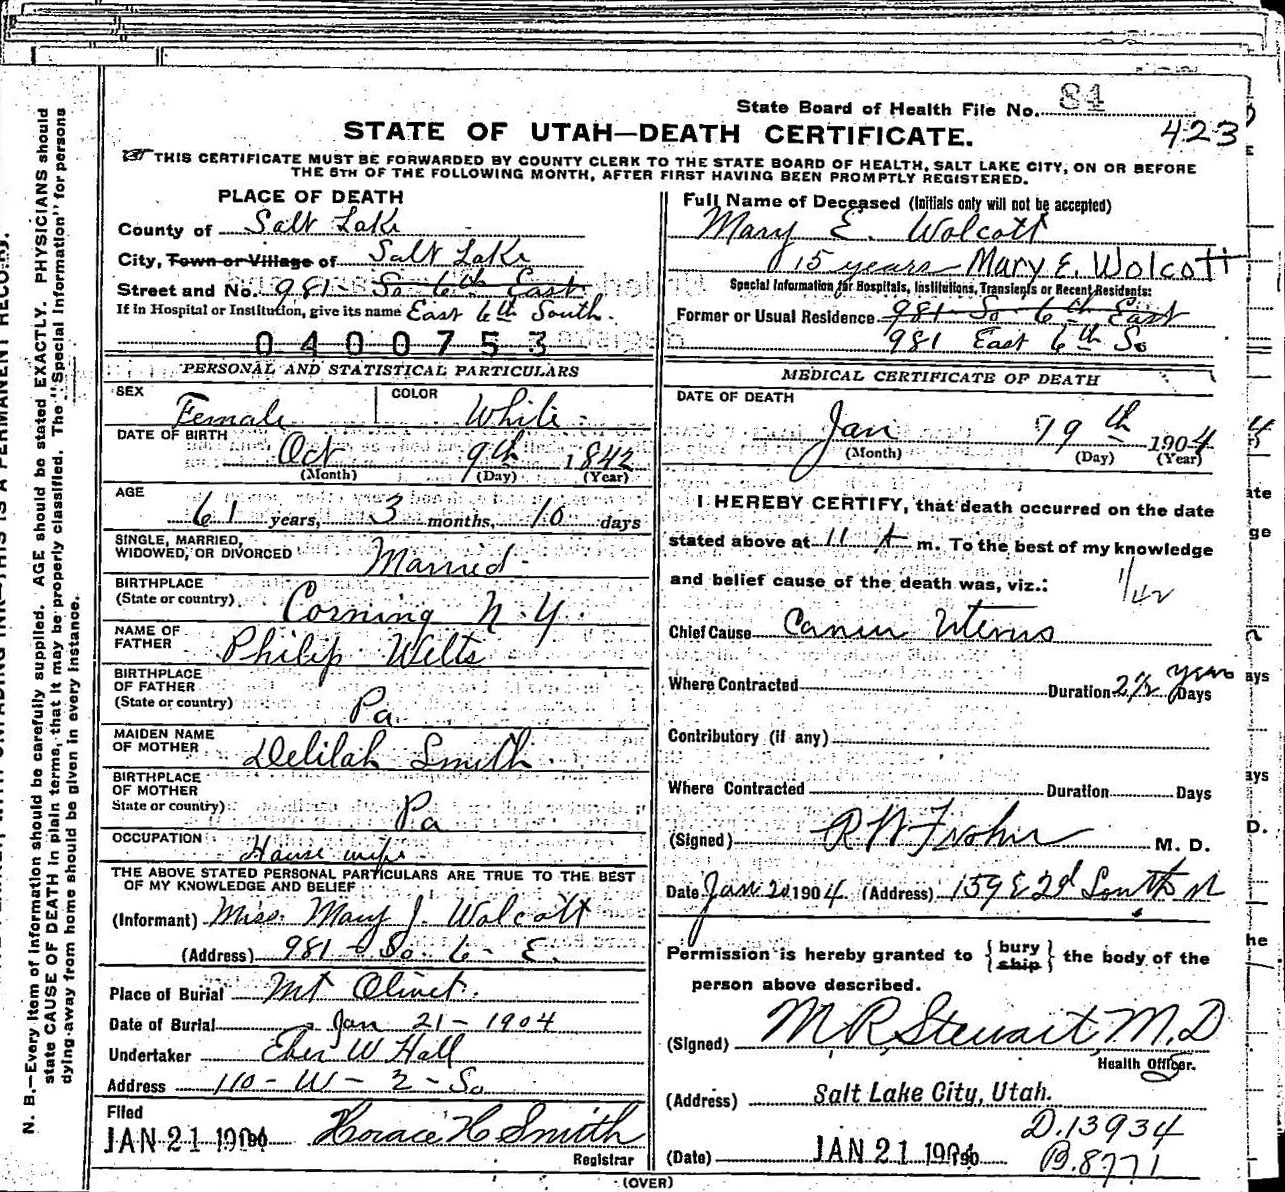 State Board of Health File No. 84
STATE OF UTAH—DEATH CERTIFICATE.
423
THIS CERTIFICATE MUST BE FORWARDED BY COUNTY CLERK TO THE STATE BOARD OF HEALTH, SALT LAKE CITY, ON OR BEFORE
THE 5TH OF THE FOLLOWING MONTH, AFTER FIRST HAVING BEEN PROMPTLY REGISTERED.
PLACE OF DEATH
County of Salt Lake
City, Town or Village of Salt Lake
Street and No. 981 - So 6th East
If in Hospital or Institution, give its name East 6th South.
0400753
PERSONAL AND STATISTICAL PARTICULARS
SEX Female COLOR White
DATE OF BIRTH Oct 9th 1842
(Month) (Day) (Year)
AGE 61 years, 3 months, 10 days
SINGLE, MARRIED,
WIDOWED, OR DIVORCED Married
BIRTHPLACE
(State or country) Corning N.Y.
NAME OF
FATHER Philip Wilts
BIRTHPLACE
OF FATHER
(State or country) Pa
MAIDEN NAME
OF MOTHER Delilah Smith
BIRTHPLACE
OF MOTHER
State or country) Pa
OCCUPATION House wife
THE ABOVE STATED PERSONAL PARTICULARS ARE TRUE TO THE BEST
OF MY KNOWLEDGE AND BELIEF
(Informant) Miss. Mary J. Wolcott
(Address) 981 - So. 6 - E.
Place of Burial Mt Olivet.
Date of Burial Jan 21 - 1904
Undertaker Eber W Hall
Address 110 - W - 2 - So
Filed
JAN 21 1904 Horace H Smith
Registrar
Full Name of Deceased (Initials only will not be accepted)
Mary E. Wolcott
15 years Mary E. Wolcott
Special Information for Hospitals, Institutions, Transients or Recent Residents:
Former or Usual Residence 981 - So 6th East
981 East 6th So
MEDICAL CERTIFICATE OF DEATH
DATE OF DEATH
Jan 19th 1904
(Month) (Day) (Year)
I HEREBY CERTIFY, that death occurred on the date
stated above at 11 A m. To the best of my knowledge
and belief cause of the death was, viz.:
1/42
Chief Cause Cancer Uterus
Where Contracted Duration 2½ years Days
Contributory (if any)
Where Contracted Duration Days
(Signed) M. D.
Date Jan 20 1904 (Address) 159 E 2d South st
Permission is hereby granted to {bury ship} the body of the
person above described.
(Signed) M R Stewart M.D
Health Officer.
(Address) Salt Lake City, Utah.
D.13934
(Date) JAN 21 1904 B.8771
(OVER)
N. B.—Every item of information should be carefully supplied. AGE should be stated EXACTLY. PHYSICIANS should
state CAUSE OF DEATH in plain terms, that it may be properly classified. The "Special Information" for persons
dying away from home should be given in every instance.